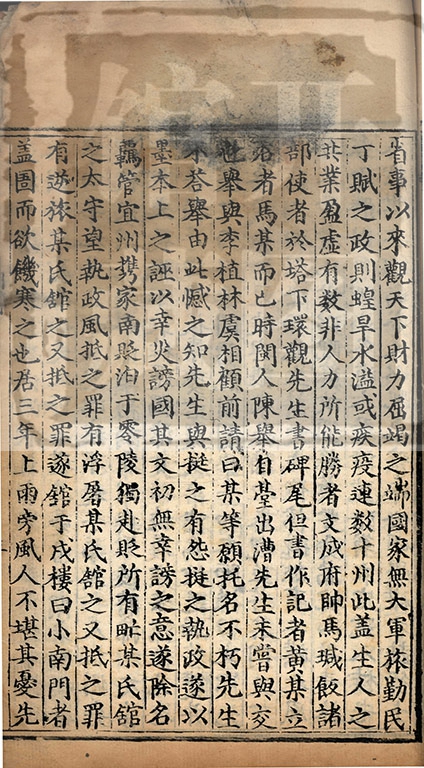 省事以來觀天下財力屈竭之端國家無大軍旅勤民
丁賦之政則蝗旱水溢或疾疫連数十州此盖生人之
共業盈虛有数非人力所能勝者文成府帥馬瑊飯諸
部使者於塔下環觀先生書碑尾但書作記者黃某立
石者馬某而已時閩人陳舉自臺出漕先生未嘗與交
也舉與李植林虞相顧前請曰某等願托名不朽先生
不荅舉由此憾之知先生與挺之有怨挺之執政遂以
墨本上之誣以幸灾謗國其文初無幸謗之意遂除名
羈管宜州携家南貶泊于零陵獨赴貶所有甿某氏舘
之太守望執政風抵之罪有浮屠某氏舘之又抵之罪
有逆旅某氏舘之又抵之罪遂舘于戍樓曰小南門者
盖圄而欲饑寒之也居三年上雨旁風人不堪其憂先